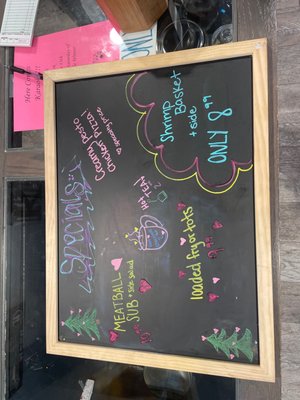 Specials:
Creamy Pesto
Chicken Pizza!
Shrimp
Basket
+ side
ONLY 8.99
HOT TEA!
MEATBALL
SUB + side salad
loaded fry or tots